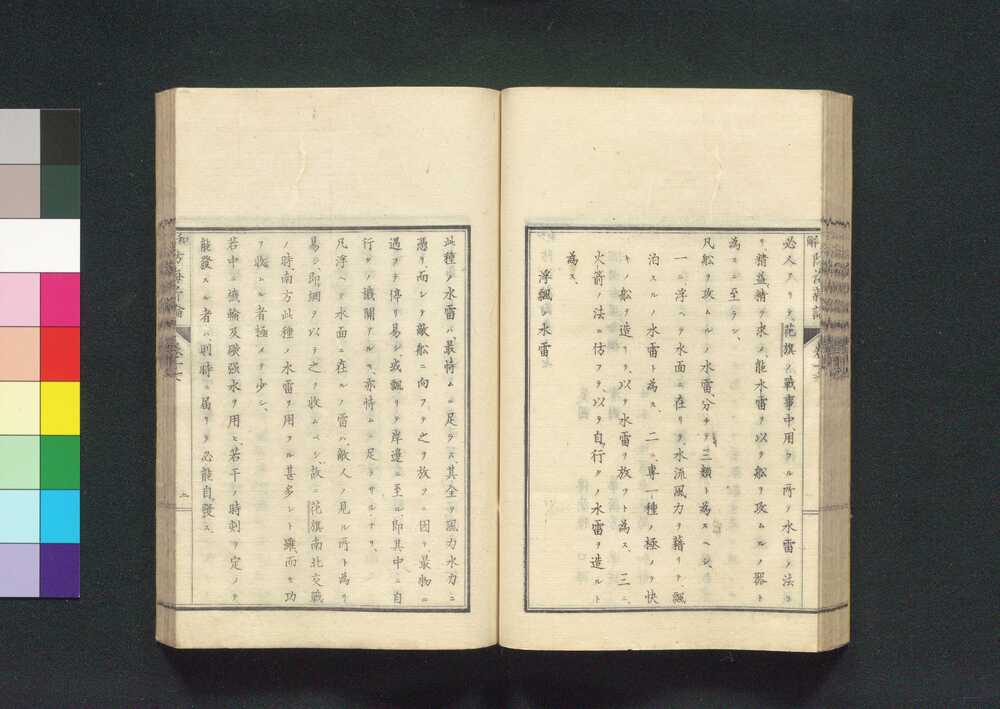 必人アリテ、花旗ノ戰事中、用フル所ノ水雷ノ法ヨ
リ、精益精ヲ求メ、能水雷ヲ以テ舩ヲ攻ムルノ器ト
為スニ至ラン、
凡舩ヲ攻ムルノ水雷、分チテ三類ト為スヘシ、
一ニ、浮ヘテ水面ニ在リテ、水流風力ヲ藉リテ、飄
泊スルノ水雷ト為ス、二ニ、專一種ノ極メテ快
キノ舩ヲ造リ、以テ水雷ヲ放ツト為ス、三ニ、
火箭ノ法ニ仿フテ、以テ自行クノ水雷ヲ造ルト
為ス、
浮飄水雷
此種ノ水雷ハ、最恃ムニ足ラス、其全ク風力水力ニ
憑リ、而シテ敵舩ニ向フテ之ヲ放ツニ因テ、最物ニ
遇フテ停リ易シ、或飄リテ岸邊ニ至ル、即其中ニ自
行クノ機關アルモ、亦恃ムニ足ラサルナリ、
凡浮ヘテ水面ニ在ルノ雷ハ、敵人ノ見ル所ト為リ
易シ、即網ヲ以テ之ヲ收ムベシ、故ニ花旗南北交戰
ノ時、南方此種ノ水雷ヲ用フル甚多シト雖、而モ功
ヲ收ムル者極メテ少シ、
若中ニ機輪及礦强水ヲ用ヒ、若干ノ時刻ヲ定メテ、
能發スル者ハ、則時ニ届リテ必能自發ス、
防海新論
巻十七
二